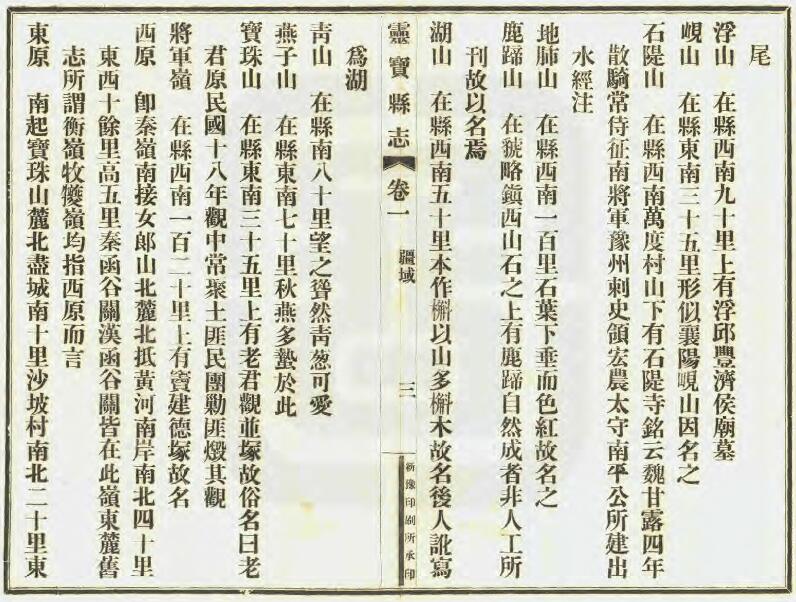 尾
浮山　在縣西南九十里上有浮邱豐濟侯廟墓
峴山　在縣東南三十五里形似襄陽峴山因名之
石隄山　在縣西南萬度村山下有石隄寺銘云魏甘露四年
散騎常侍征南將軍豫州刺史領宏農太守南平公所建出
水經注
地肺山　在縣西南一百里石葉下垂而色紅故名之
鹿蹄山　在虢略鎭西山石之上有鹿蹄自然成者非人工所
刊故以名焉
湖山　在縣西南五十里本作槲以山多槲木故名後人訛寫
靈寶縣志　卷一　疆域　三　新豫印刷所承印
爲湖
靑山　在縣南八十里望之聳然靑葱可愛
燕子山　在縣東南七十里秋燕多蟄於此
寶珠山　在縣東南三十五里上有老君觀並塚故俗名曰老
君原民國十八年觀中常聚土匪民團勦匪燬其觀
將軍嶺　在縣西南一百二十里上有竇建德塚故名
西原　卽秦嶺南接女郞山北麓北抵黃河南岸南北四十里
東西十餘里高五里秦函谷關漢函谷關皆在此嶺東麓舊
志所謂衡嶺牧獿嶺均指西原而言
東原　南起寶珠山麓北盡城南十里沙坡村南北二十里東